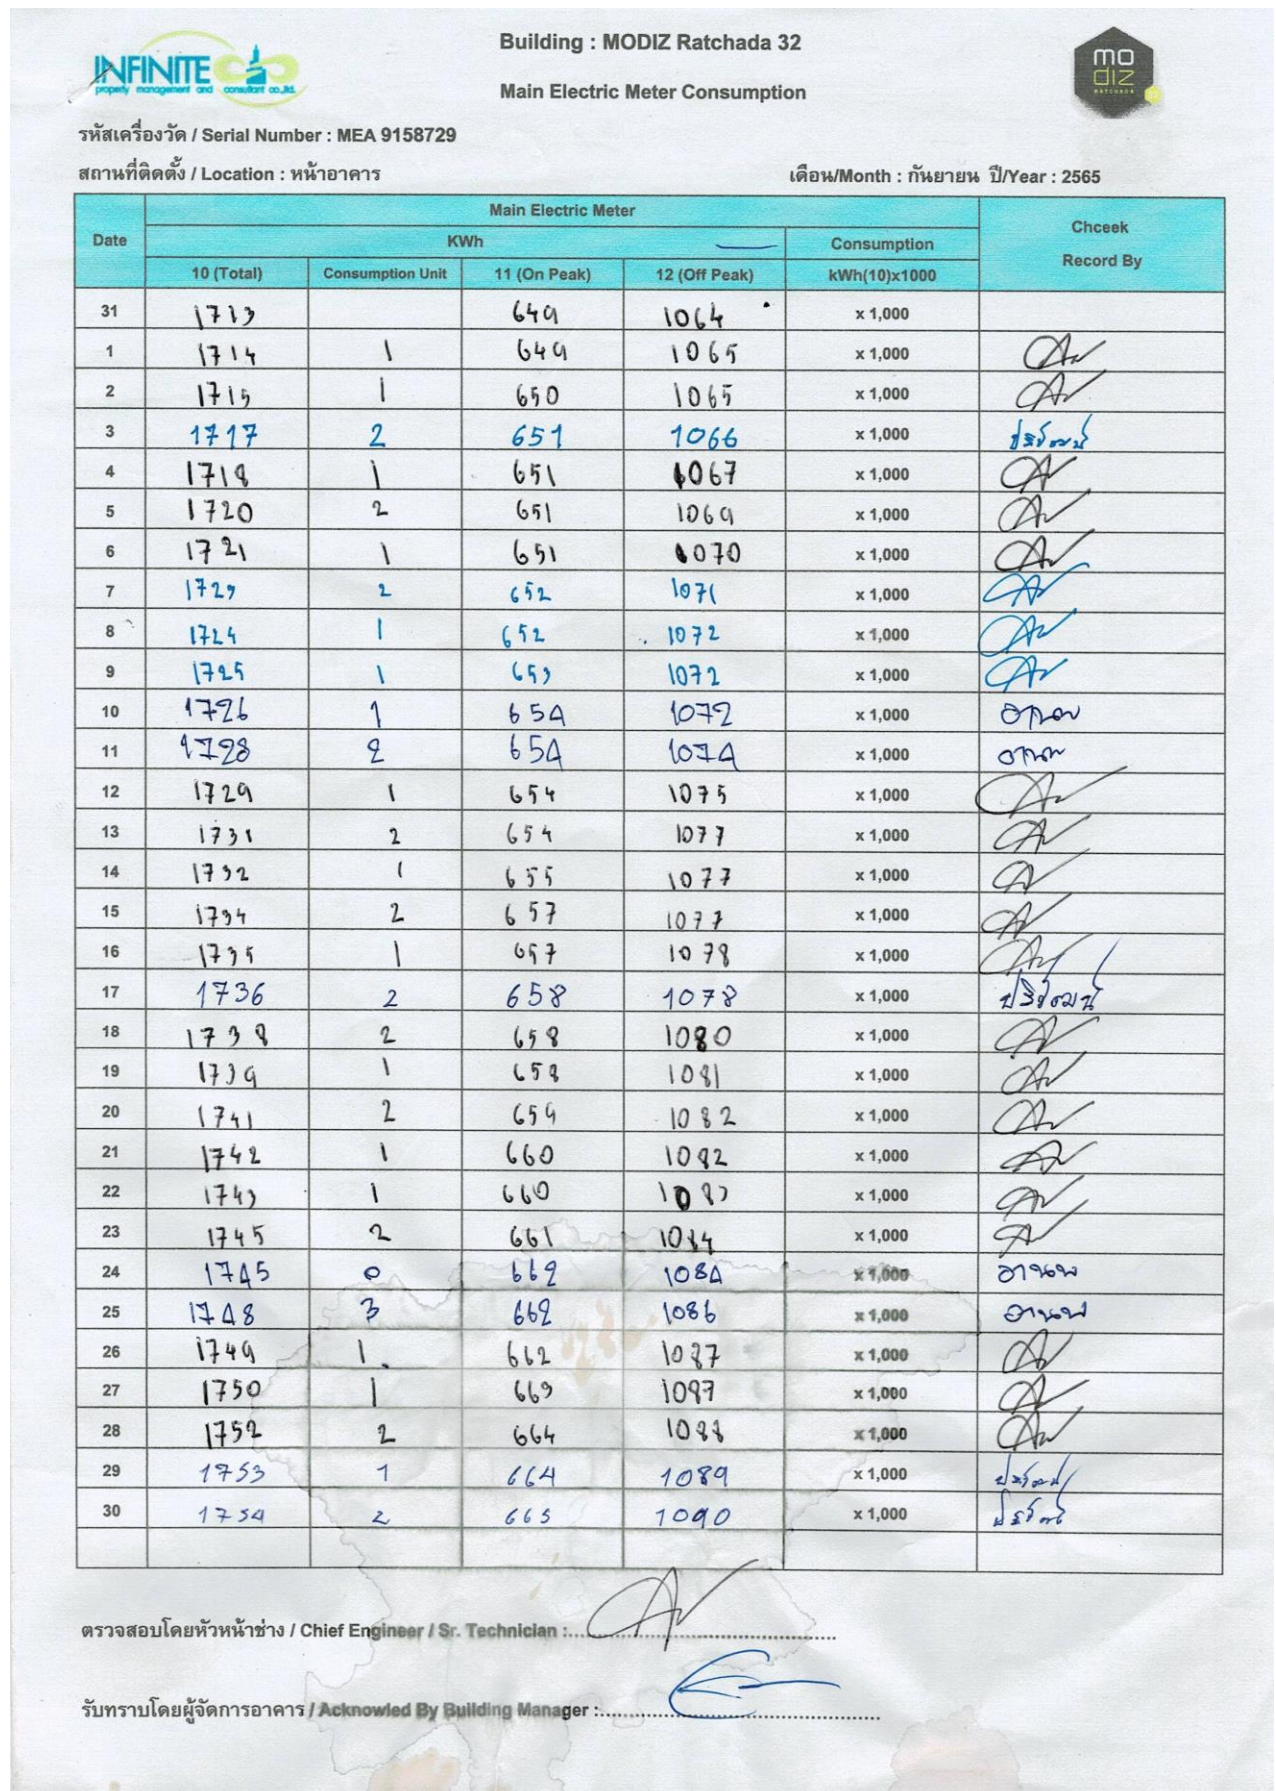 INFINITE
property management and consultant co.,ltd.
Building : MODIZ Ratchada 32
mo
diz
RATCHADA
Main Electric Meter Consumption
รหัสเครื่องวัด / Serial Number : MEA 9158729
สถานที่ติดตั้ง / Location : หน้าอาคาร เดือน/Month : กันยายน ปี/Year : 2565
Main Electric Meter
Date KWh Consumption Chceek
10 (Total) Consumption Unit 11 (On Peak) 12 (Off Peak) kWh(10)x1000 Record By
31 1713 649 1064 x 1,000
1 1714 1 649 1065 x 1,000
2 1715 1 650 1065 x 1,000
3 1717 2 651 1066 x 1,000
4 1718 1 651 1067 x 1,000
5 1720 2 651 1069 x 1,000
6 1721 1 651 1070 x 1,000
7 1723 2 652 1071 x 1,000
8 1724 1 652 1072 x 1,000
9 1725 1 653 1072 x 1,000
10 1726 1 654 1072 x 1,000 อานนท
11 1728 2 654 1074 x 1,000 อานนท
12 1729 1 654 1075 x 1,000
13 1731 2 654 1077 x 1,000
14 1732 1 655 1077 x 1,000
15 1734 2 657 1077 x 1,000
16 1735 1 657 1078 x 1,000
17 1736 2 658 1078 x 1,000
18 1738 2 658 1080 x 1,000
19 1739 1 658 1081 x 1,000
20 1741 2 659 1082 x 1,000
21 1742 1 660 1082 x 1,000
22 1743 1 660 1083 x 1,000
23 1745 2 661 1084 x 1,000
24 1745 0 662 1084 x 1,000 อานนท
25 1748 3 662 1086 x 1,000 อานนท
26 1749 1 662 1087 x 1,000
27 1750 1 663 1087 x 1,000
28 1752 2 664 1088 x 1,000
29 1753 1 664 1089 x 1,000
30 1754 2 665 1090 x 1,000
ตรวจสอบโดยหัวหน้าช่าง / Chief Engineer / Sr. Technician :
รับทราบโดยผู้จัดการอาคาร / Acknowled By Building Manager :